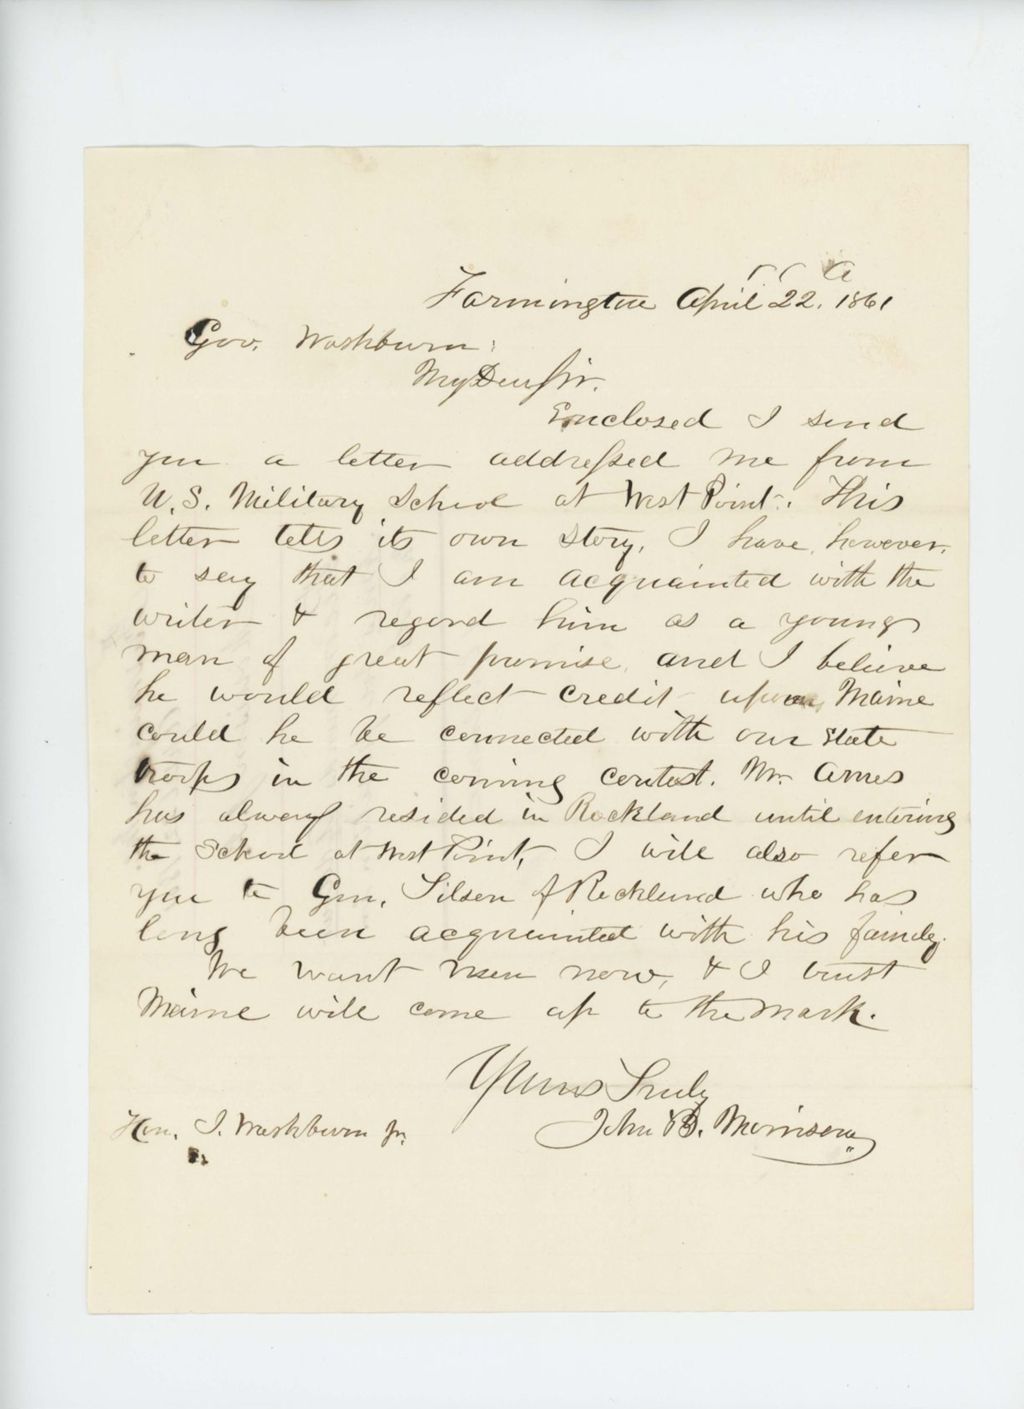 Farmington April 22. 1861
Gov. Washburn:
My Dear Sir.
Enclosed I send
you a letter addressed me from
U.S. Military School at West Point. This
letter tells its own story, I have, however,
to say that I am acquainted with the
writer & regard him as a young
man of great promise, and I believe
he would reflect credit upon Maine
could he be connected with our State
troops in the coming contest. Mr. Ames
has always resided in Rockland until entering
the School at West Point, I will also refer
you to Gen. Tilson of Rockland who has
long been acquainted with his family.
We want men now, & I trust
Maine will come up to the mark.
Yours Truly
John B. Morrison
Hon. I. Washburn Jr.